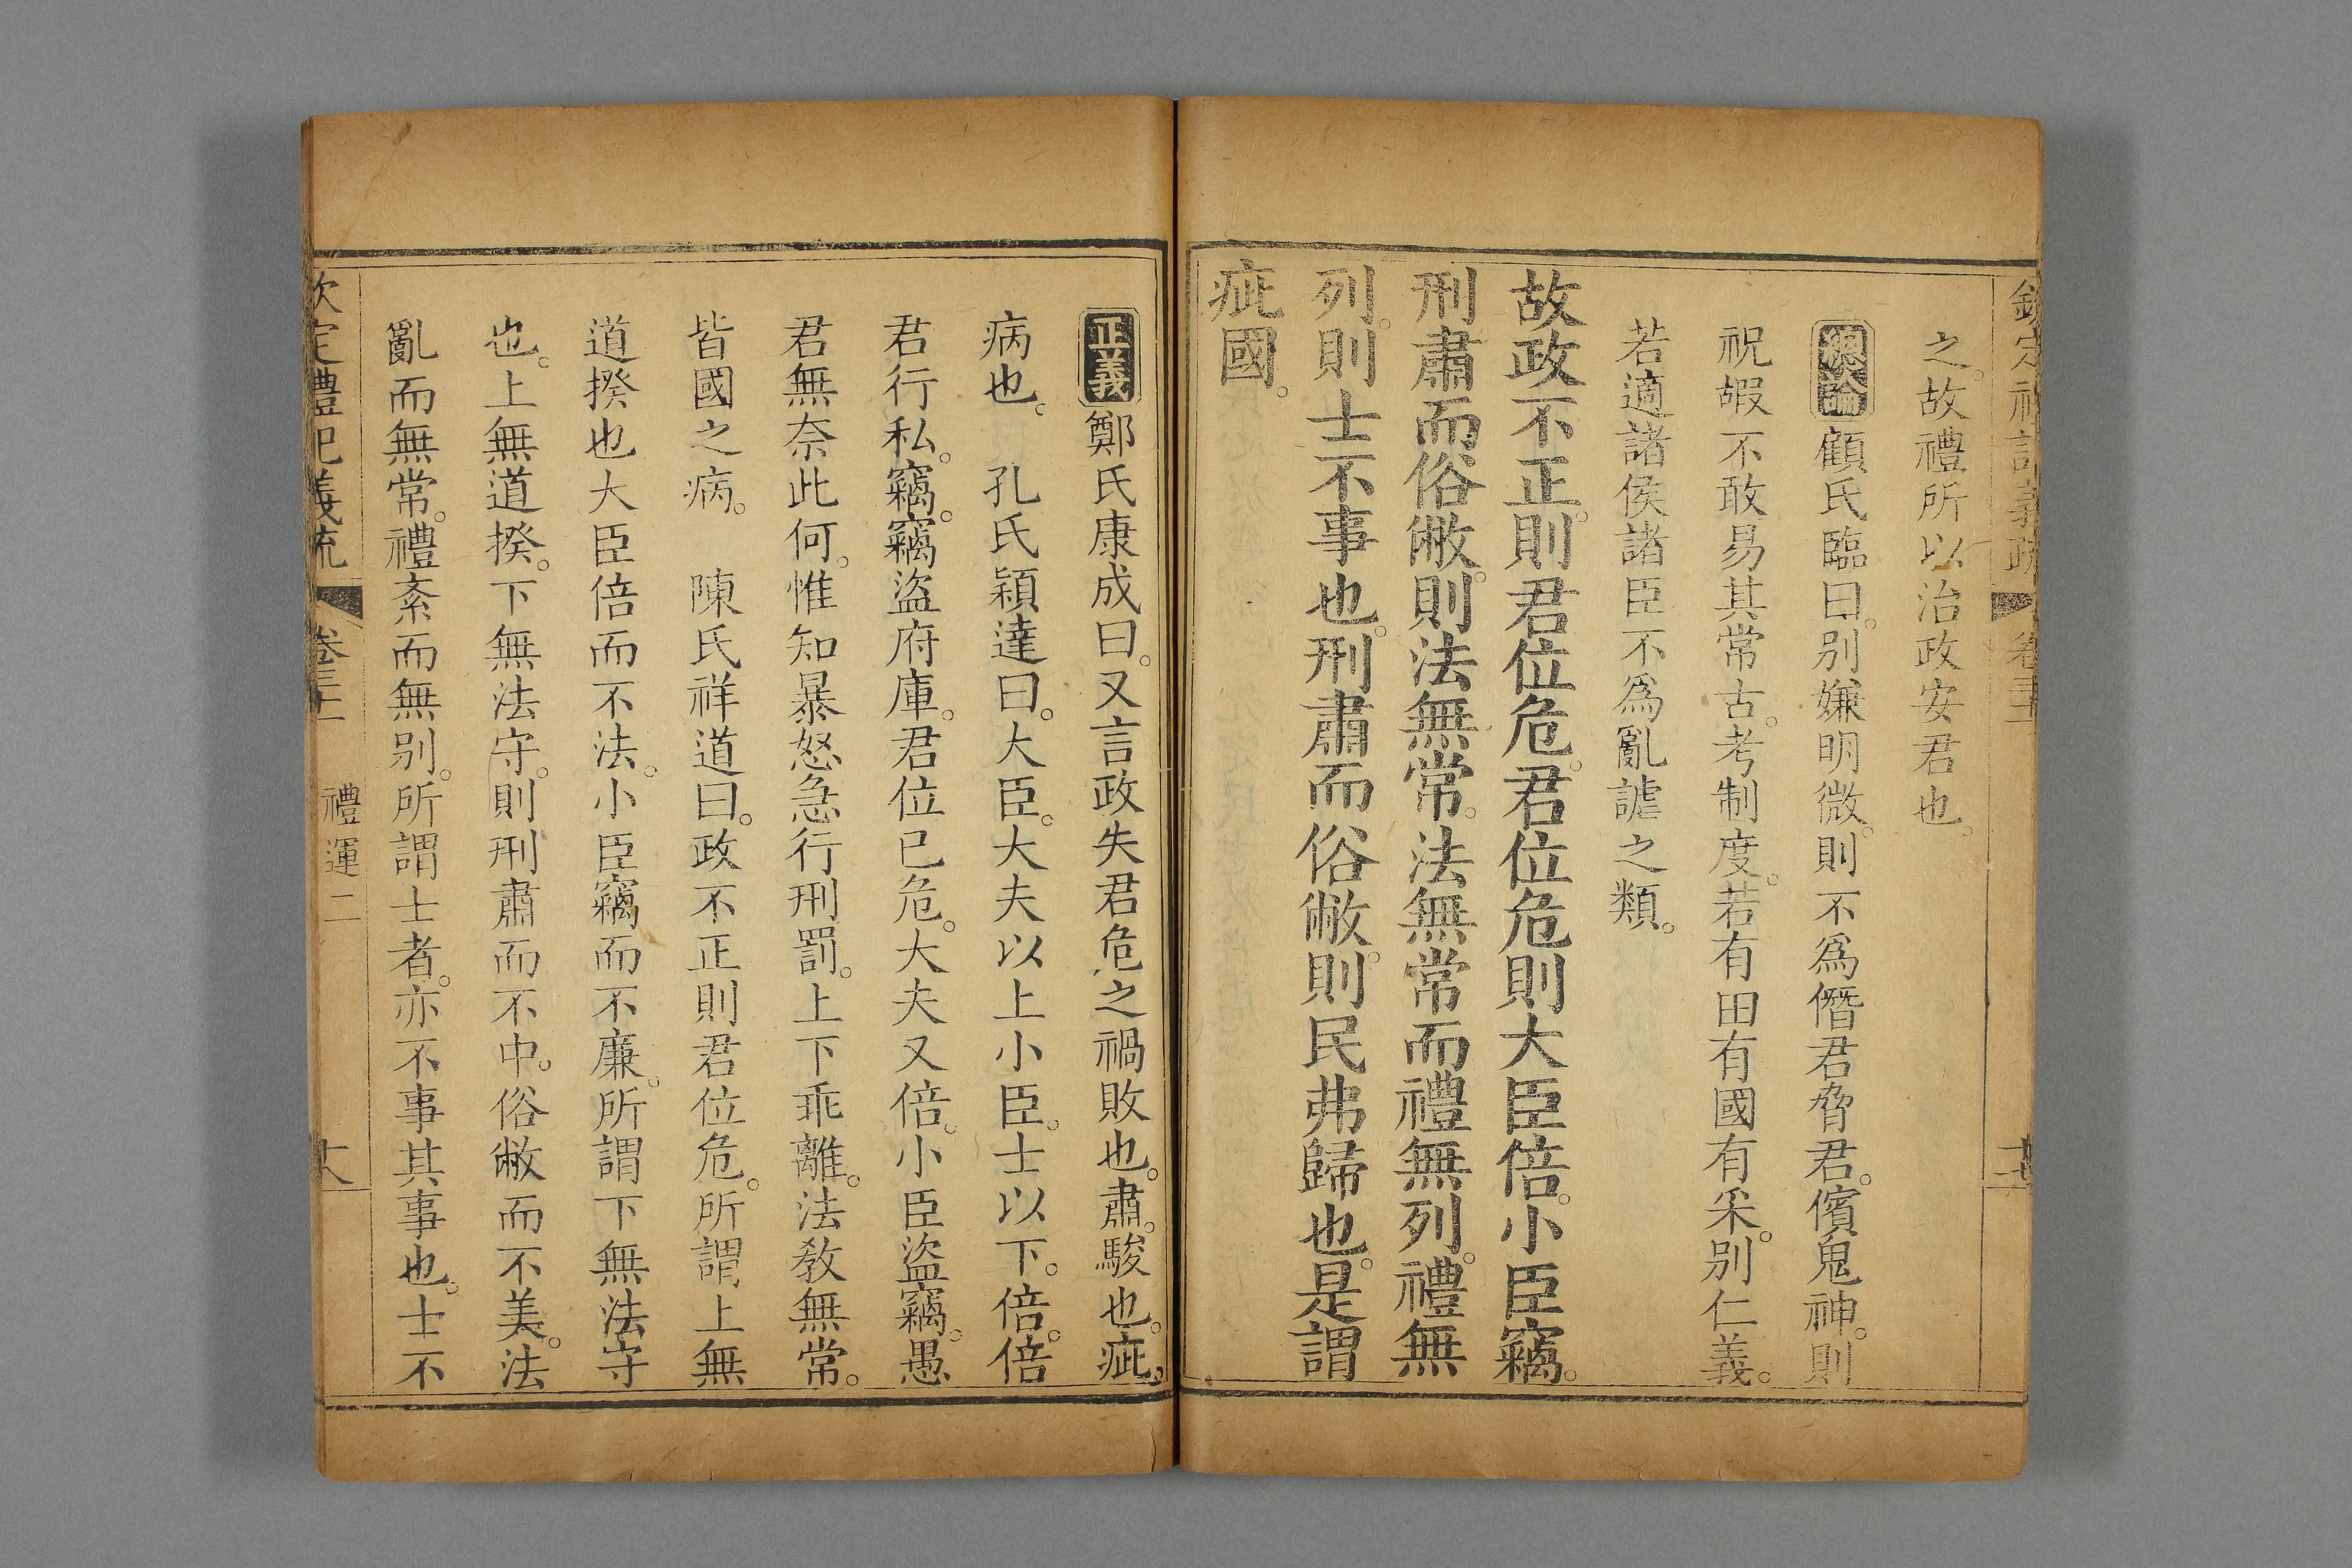 欽定禮記義疏 卷三十一
之。故禮所以治政安君也。
總論 顧氏臨曰。别嫌明微。則不爲僭君脅君。儐鬼神。則
祝嘏不敢易其常古。考制度。若有田有國有采。别仁義。
若適諸侯諸臣不爲亂謔之類。
故政不正。則君位危。君位危則大臣倍。小臣竊。
刑肅而俗敝。則法無常。法無常而禮無列。禮無
列。則士不事也。刑肅而俗敝。則民弗歸也。是謂
疵國。
正義 鄭氏康成曰。又言政失君危之禍敗也。肅。駿也。疵。
病也。 孔氏穎達曰。大臣。大夫以上小臣。士以下。倍。倍
君行私。竊。竊盜府庫。君位已危。大夫又倍。小臣盜竊。愚
君無奈此何。惟知暴怒急行刑罰。上下乖離。法教無常。
皆國之病。 陳氏祥道曰。政不正則君位危。所謂上無
道揆也大臣倍而不法。小臣竊而不廉。所謂下無法守
也。上無道揆。下無法守。則刑肅而不中。俗敝而不美。法
亂而無常。禮紊而無别。所謂士者。亦不事其事也。士不
欽定禮記義疏 卷三十一 禮運二 十八